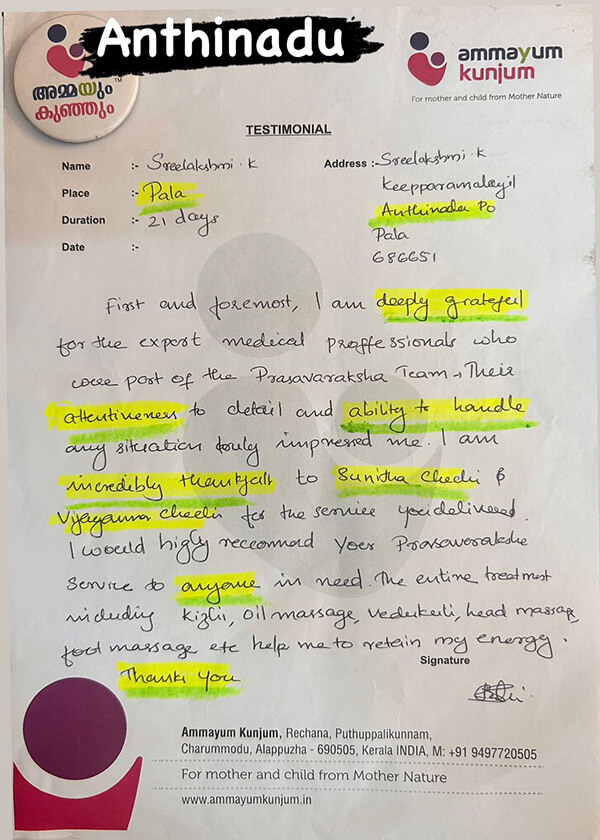 Anthinadu
അമ്മയും
കുഞ്ഞും
TM
ammayum
kunjum
For mother and child from Mother Nature
TESTIMONIAL
Name :- Sreelakshmi . K
Place :- Pala
Duration :- 21 days
Date :-
Address :- Sreelakshmi . K
Keepparamalayil
Anthinadu PO
Pala
686651
First and foremost, I am deeply grateful
for the expert medical proffessionals who
were part of the Prasavaraksha Team. Their
attentiveness to detail and ability to handle
any situation truly impressed me. I am
incredibly thankfull to Sunitha Chechi &
Vijayamma chechi for the service you delivered.
I would higly recommend your Prasavaraksha
service to anyone in need. The entire treatment
including Kizhi, oil massage, vedukuli, head massage,
foot massage etc help me to retain my energy.
Thank You
Signature
Ammayum Kunjum, Rechana, Puthuppalikunnam,
Charummodu, Alappuzha - 690505, Kerala INDIA, M: +91 9497720505
For mother and child from Mother Nature
www.ammayumkunjum.in